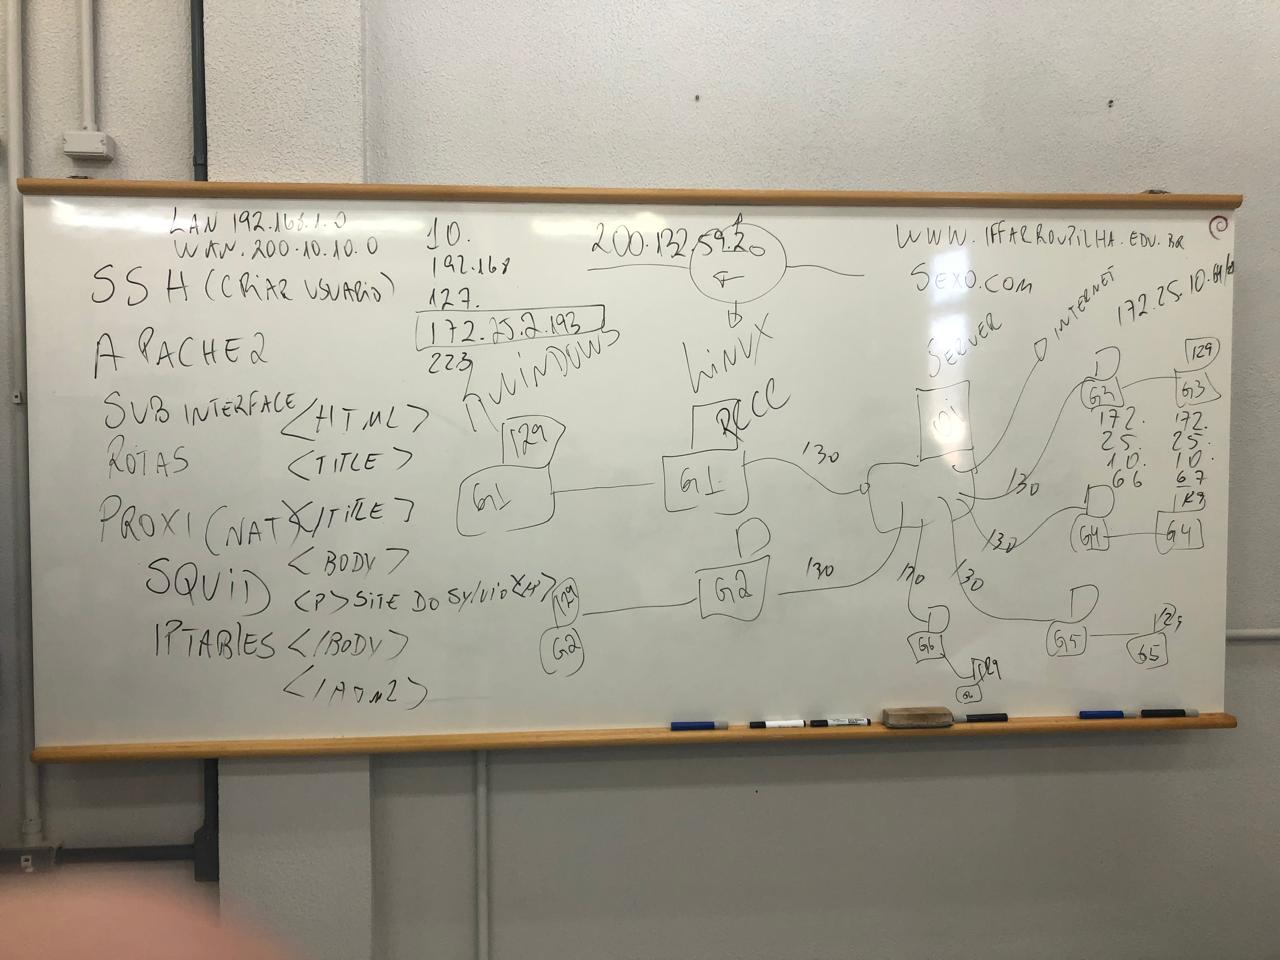 LAN 192.168.1.0
WAN. 200.10.10.0
SSH (CRIAR USUARIO)
APACHE2
SUB INTERFACE
ROTAS
PROXI (NAT)
SQUID
IPTABLES
<HTML>
<TITLE>
</TITLE>
<BODY>
<P> SITE DO SYLVIO
</BODY>
10.
192.168
127.
172.25.2.193
223
WINDOWS
129
G1
129
G2
200.132.59.20
LINUX
G1
130
G2
130
WWW.IFFARROUPILHA.EDU.BR
SEXO.COM
SERVER
INTERNET
172.25.10.64
G3
129
G3
172.
25.
10.
66
172.
25.
10.
67
130
G4
G4
130
130
G6
130
G5
129
G5